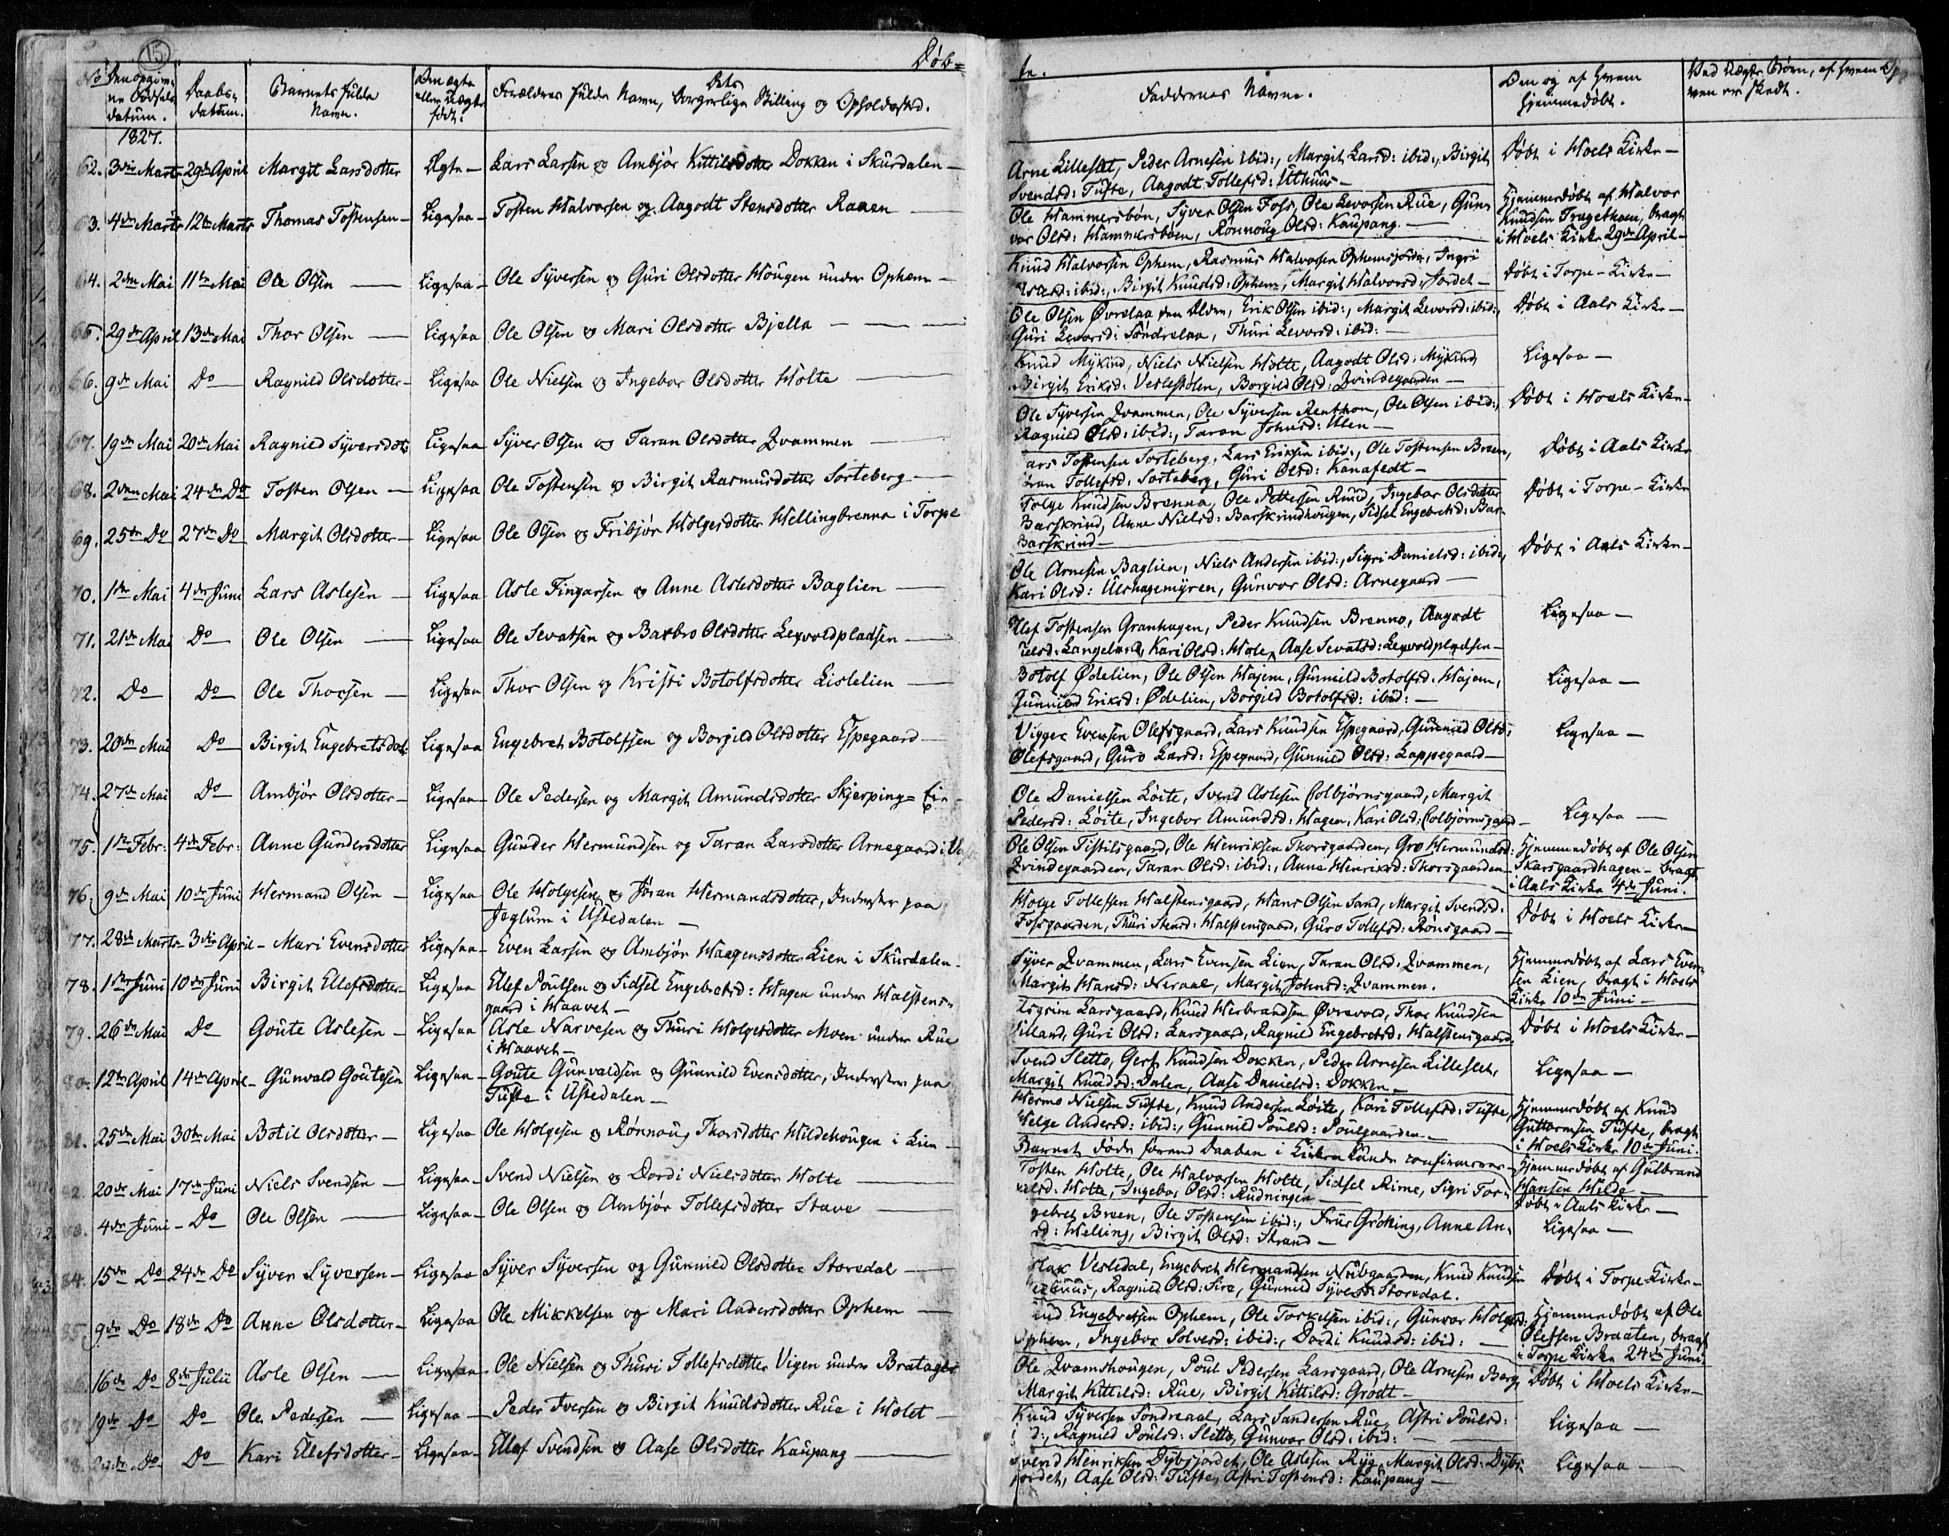 15
Døb=
te.
No
Den opgivne Fødsels datum.
Daabs-datum.
Barnets fulde Navn.
Om ægte eller uægte født.
Forældrenes fulde Navn, Dets borgerlige Stilling og Opholdssted.
Faddernes Navne.
Om og af hvem hjemmedøbt.
1827.
62. 3die Marts 29de April Margit Larsdotter Ægte— Lars Larsen og Ambjør Kittilsdotter Dokken i Skurdalen—
Arne Lilleslet, Peder Arnesen ibid:, Margit Larsd: ibid:, Birgit
Svendsd: Tufte, Aagodt Tollefsd: Uthuus—
Døbt i Hoels Kirke—
63. 4de Marts 12te Marts Thomas Tostensen— Ligesaa— Tosten Halvorsen og Aagodt Stensdotter Raaen—
Ole Hammersbøn, Syver Olsen Foss, Ole Levorsen Rue, Gun-
vor Olsd: Hammersbøen, Rønnoug Olsd: Kaupang—
Hjemmedøbt af Halvor
Knudsen Tragethoen, bragt
i Hoels Kirke 29de April—
64. 2den Mai 11te Mai Ole Olsen— Ligesaa— Ole Syversen og Guri Olsdotter Hougen under Ophem—
Knud Halvorsen Ophem, Rasmus Halvorsen Ophemsjorde, Ingri
ibid:, Birgit Knudsd: Ophem, Margit Halvorsd: Jordet—
Døbt i Torpe-Kirke—
65. 29de April 13de Mai Thor Olsen— Ligesaa Ole Olsen og Mari Olsdotter Bjella—
Ole Olsen Øvrelaa den Ældre, Erik Olsen ibid:, Margit Levorsd: ibid:,
Guri Levorsd: Søndrelaa, Thuri Levorsd: ibid:—
Døbt i Aals Kirke—
66. 9de Mai Do Ragnild Olsdotter— Ligesaa Ole Nielsen og Ingebor Olsdotter Holte—
Knud Myking, Niels Nielsen Holte, Aagodt Olsd: Myking
Birgit Eriksd: Veslestølen, Borgild Olsd: Qvindegaarden—
Ligesaa—
67. 19de Mai 20de Mai Ragnild Syversdot: Ligesaa Syver Olsen og Taran Olsdotter Qvammen—
Ole Syversen Qvammen, Ole Syversen Renthon, Ole Olsen ibid:,
Ragnild Olsd: ibid:, Taran Johnsd: Ulen—
Døbt i Hoels Kirke—
68. 2den Mai 24de Do Tosten Olsen— Ligesaa Ole Tostensen og Birgit Rasmusdotter Sorteberg—
Lars Tostensen Sorteberg, Lars Eriksen ibid:, Ole Tostensen Breen,
Jøran Tollefsd: Sorteberg, Guri Olsd: Kanafedt—
Døbt i Aals Kirke
69. 25de Do 27de Do Margit Olsdotter— Ligesaa Ole Olsen og Fribjør Holgersdotter Wellingbrenna i Torpe
Holge Knudsen Brenna, Ole Pettersen Ruud, Ingebor Olsdotter
Barskrind, Anne Nielsd: Barskrindhougen, Sidsel Engebretsd: Bar-
Barskrind—
Døbt i Torpe-Kirke
70. 1te Mai 4de Juni Lars Aslesen— Ligesaa Asle Fingarsen og Anne Aslesdotter Baglien—
Ole Arnesen Baglien, Niels Andersen ibid:, Sigri Danielsd: ibid:,
Kari Olsd: Ulshagemyren, Gunvor Olsd: Arnegaard—
Døbt i Aals Kirke—
71. 21de Mai Do Ole Olsen— Ligesaa Ole Sevatsen og Barbro Olsdotter Lexvoldpladsen—
Ellef Tostensen Granhagen, Peder Knudsen Brenno, Aagodt
Kari Olsd: Hole, Aase Sevatsd: Lexvoldpladsen—
Ligesaa—
72. Do Do Ole Thorsen— Ligesaa Thor Olsen og Kristi Botolfsdotter Lislelien—
Botolf Ødelien, Ole Olsen Hagem, Gunnild Botolfsd: Hagem,
Gunnild Eriksd: Ødelien, Borgild Botolfsd: ibid:—
Ligesaa—
73. 20de Mai Do Birgit Engebretsdot: Ligesaa Engebret Botolfsen og Borgild Olsdotter Espegaard—
Vigger Evensen Olefsgaard, Lars Knudsen Espegaard, Gunnild Olsd:
Olefsgaard, Guro Larsd: Espegaard, Gunnild Olsd: Lappegaard—
Ligesaa—
74. 27de Mai Do Ambjør Olsdotter— Ligesaa— Ole Pedersen og Margit Amundsdotter Skjerping= Eie
Ole Danielsen Løite, Svend Aslesen Colbjørnsgaard, Margit
Pedersd: Løite, Ingebor Amundsd: Hagen, Kari Olsd: Colbjørnsgaard—
Ligesaa—
75. 1te Febr: 4de Febr: Anne Gundersdotter Ligesaa— Gunder Hermundsen og Taran Larsdotter Arnegaard i
Ole Olsen Tistilsgaard, Ole Henriksen Thorsgaarden, Gro Hermundsd:
Qvindegaarden, Taran Olsd: ibid:, Anne Henriksd: Thorsgaarden—
Hjemmedøbt af Ole Olsen
Skarsgaardhagen— bragt
i Aals Kirke 4de Juni.
76. 9de Mai 10de Juni Hermand Olsen— Ligesaa Ole Holgesen og Jøran Hermandsdotter, Inderster paa
Jeglum i Ustedalen—
Holge Tollefsen Halstensgaard, Hans Olsen Sand, Margit Svendsd:
Fossgaarden, Thuri Stensd: Halstensgaard, Guro Tollefsd: Ronsgaard—
Døbt i Hoels Kirke—
77. 28de Marts 3die April— Mari Evensdotter Ligesaa— Even Larsen og Ambjør Haagensdotter Lien i Skurdalen—
Syver Qvammen, Lars Evensen Lien, Taran Olsd: Qvammen,
Margit Hansd: Neraal, Margit Johnsd: Qvammen.
Hjemmedøbt af Lars Even-
sen Lien, bragt i Hoels
Kirke 10de Juni—
78. 1te Juni 10de Juni Birgit Ellefsdotter Ligesaa Ellef Poulsen og Sidsel Engebretsd: Hagen under Halstens-
gaard i Haavet—
Asgrim Larsgaard, Knud Herbrandsen Øvrevold, Thor Knudsen
Villand, Guri Olsd: Larsgaard, Ragnild Engebretsd: Halstensgaard
Døbt i Hoels Kirke—
79. 26de Mai Do Goute Aslesen— Ligesaa Asle Narvesen og Thuri Holgersdotter Moen under Rue
i Haavet—
Svend Sletto, Gert Knudsen Dokken, Peder Arnesen Lilleslet,
Margit Knudsd: Dalen, Aase Danielsd: Dokken—
Ligesaa—
80. 12te April 14de April— Gunvald Goutesen Ligesaa— Goute Gunvaldsen og Gunnild Evensdotter, Inderster paa
Tufte i Ustedalen—
Hermo Nielsen Tufte, Knud Andersen Løite, Kari Tollefsd: Tufte,
Helge Andersd: ibid:, Gunnild Poulsd: Poulgaarden—
Hjemmedøbt af Knud
Guttormsen Tufte, bragt
i Hoels Kirke 10de Juni.
81. 25de Mai 30te Mai Botil Olsdotter— Ligesaa— Ole Holgesen og Rønnoug Thorsdotter Hildehougen i Lien—
Barnet døde førend Daaben i Kirken kunde confirmeres—
Hjemmedøbt af Gulbrand
Hansen Helde—
82. 20de Mai 17de Juni Niels Svendsen— Ligesaa— Svend Nielsen og Dordi Nielsdotter Holte—
Tosten Holte, Ole Halvorsen Holte, Sidsel Rime, Sigri Tor-
kelsd: Holte, Ingebor Olsd: Rudningen—
Døbt i Aals Kirke—
83. 4de Juni— Do Ole Olsen— Ligesaa— Ole Olsen og Ambjør Tollefsdotter Stave—
Engebret Breen, Ole Tostensen ibid:, Anne An-
sd: Helling, Birgit Olsd: Strand—
Ligesaa—
84. 15de Do 24de Do Syver Syversen— Ligesaa— Syver Syversen og Gunnild Olsdotter Storedal—
Aslak Vestedal, Engebret Hermandsen Nubgaarden, Knud Knudsen
Ragnild Olsd: Sire, Gunnild Syversd: Storedal.
Døbt i Torpe Kirke—
85. 9de Do 18de Do Anne Olsdotter— Ligesaa— Ole Mikkelsen og Mari Andersdotter Ophem—
Knud Engebretsen Ophem, Ole Torkelsen ibid:, Gunvor Holgersd:
Ophem, Ingebor Solvesd: ibid:, Dordi Knudsd: ibid:—
Hjemmedøbt af Ole
Olefsen Braaten, bragt
i Torpe Kirke 24de Juni
86. 16de Do 8de Julii Asle Olsen— Ligesaa— Ole Nielsen og Thuri Tollefsdotter Vigen under Bratager
Ole Qvamshougen, Poul Pedersen Larsgaard, Ole Arnesen Berg,
Margit Kittilsd: Rue, Birgit Kittilsd: Grodt—
Døbt i Hoels Kirke—
87. 19de Do Do Ole Pedersen— Ligesaa— Peder Iversen og Birgit Knudsdotter Rue i Holet—
Knud Syversen Søndreaal, Lars Sandersen Rue, Astri Poulsd:
ibid:, Ragnild Poulsd: Sletto, Gunvor Olsd: ibid:
Ligesaa—
88. Do Do Kari Ellefsdotter— Ligesaa— Ellef Svendsen og Aase Olsdotter Kaupang—
Svend Henriksen Dybsjordet, Ole Aslesen Rye, Margit Olsd: Dybs-
jordet, Aase Olsd: Tufte, Astri Tostensd: Kaupang—
Ligesaa—